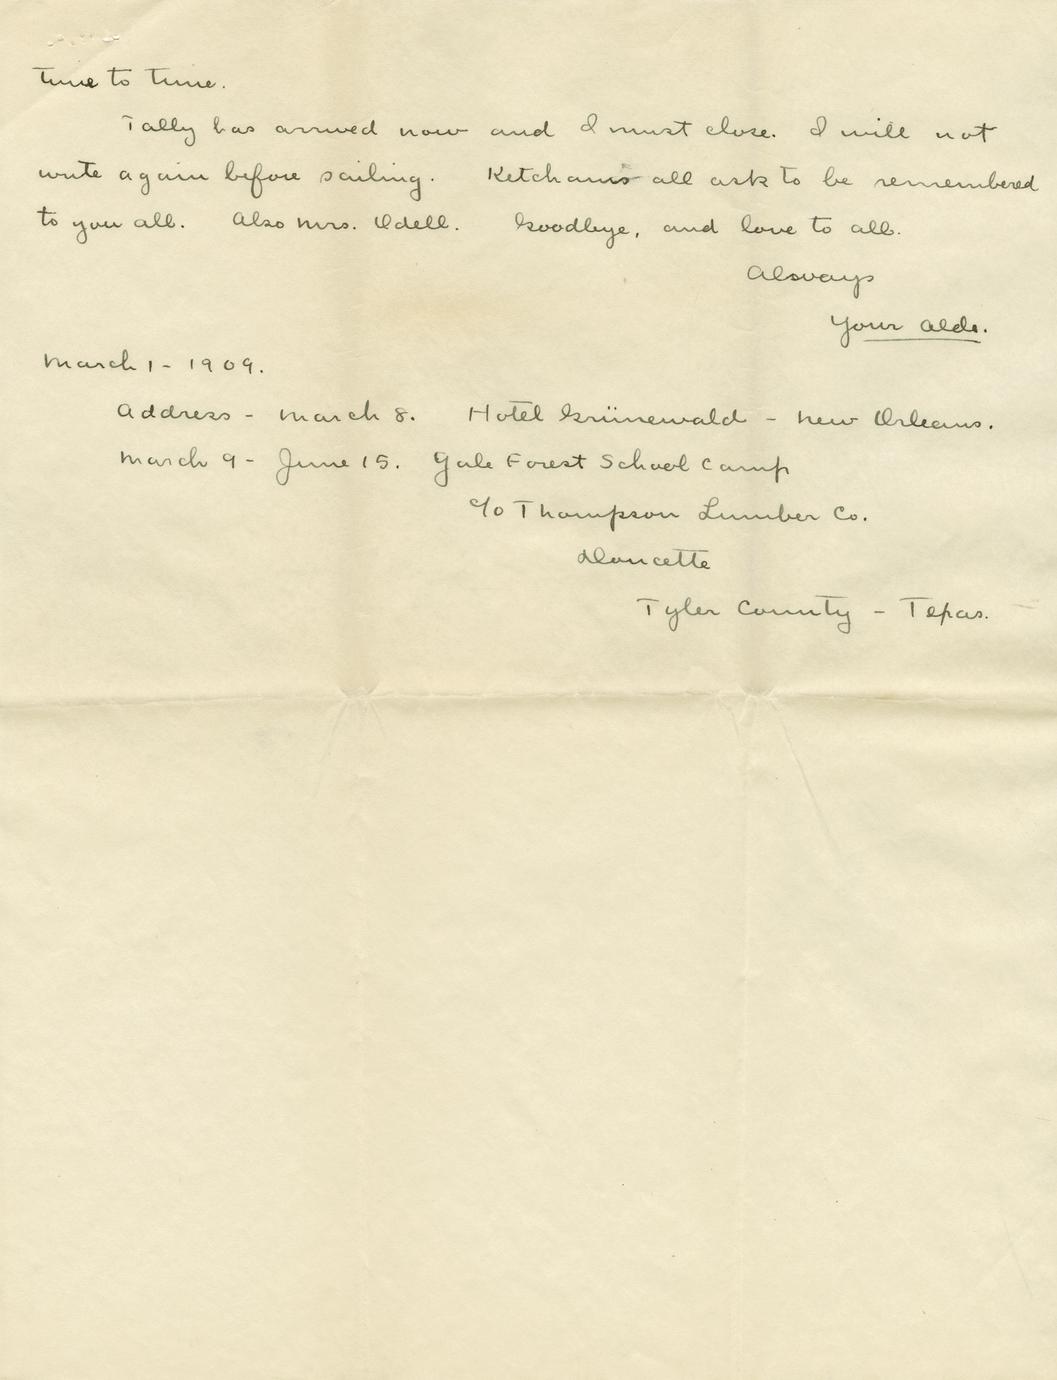 time to time.
Tally has arrived now and I must close. I will not
write again before sailing. Ketchams all ask to be remembered
to you all. Also Mrs. Odell. Goodbye, and love to all.
Always
Your Aldo.
March 1 - 1909.
Address - March 8. Hotel Grünewald - New Orleans.
March 9 - June 15. Yale Forest School Camp
c/o Thompson Lumber Co.
Doucette
Tyler County - Texas.